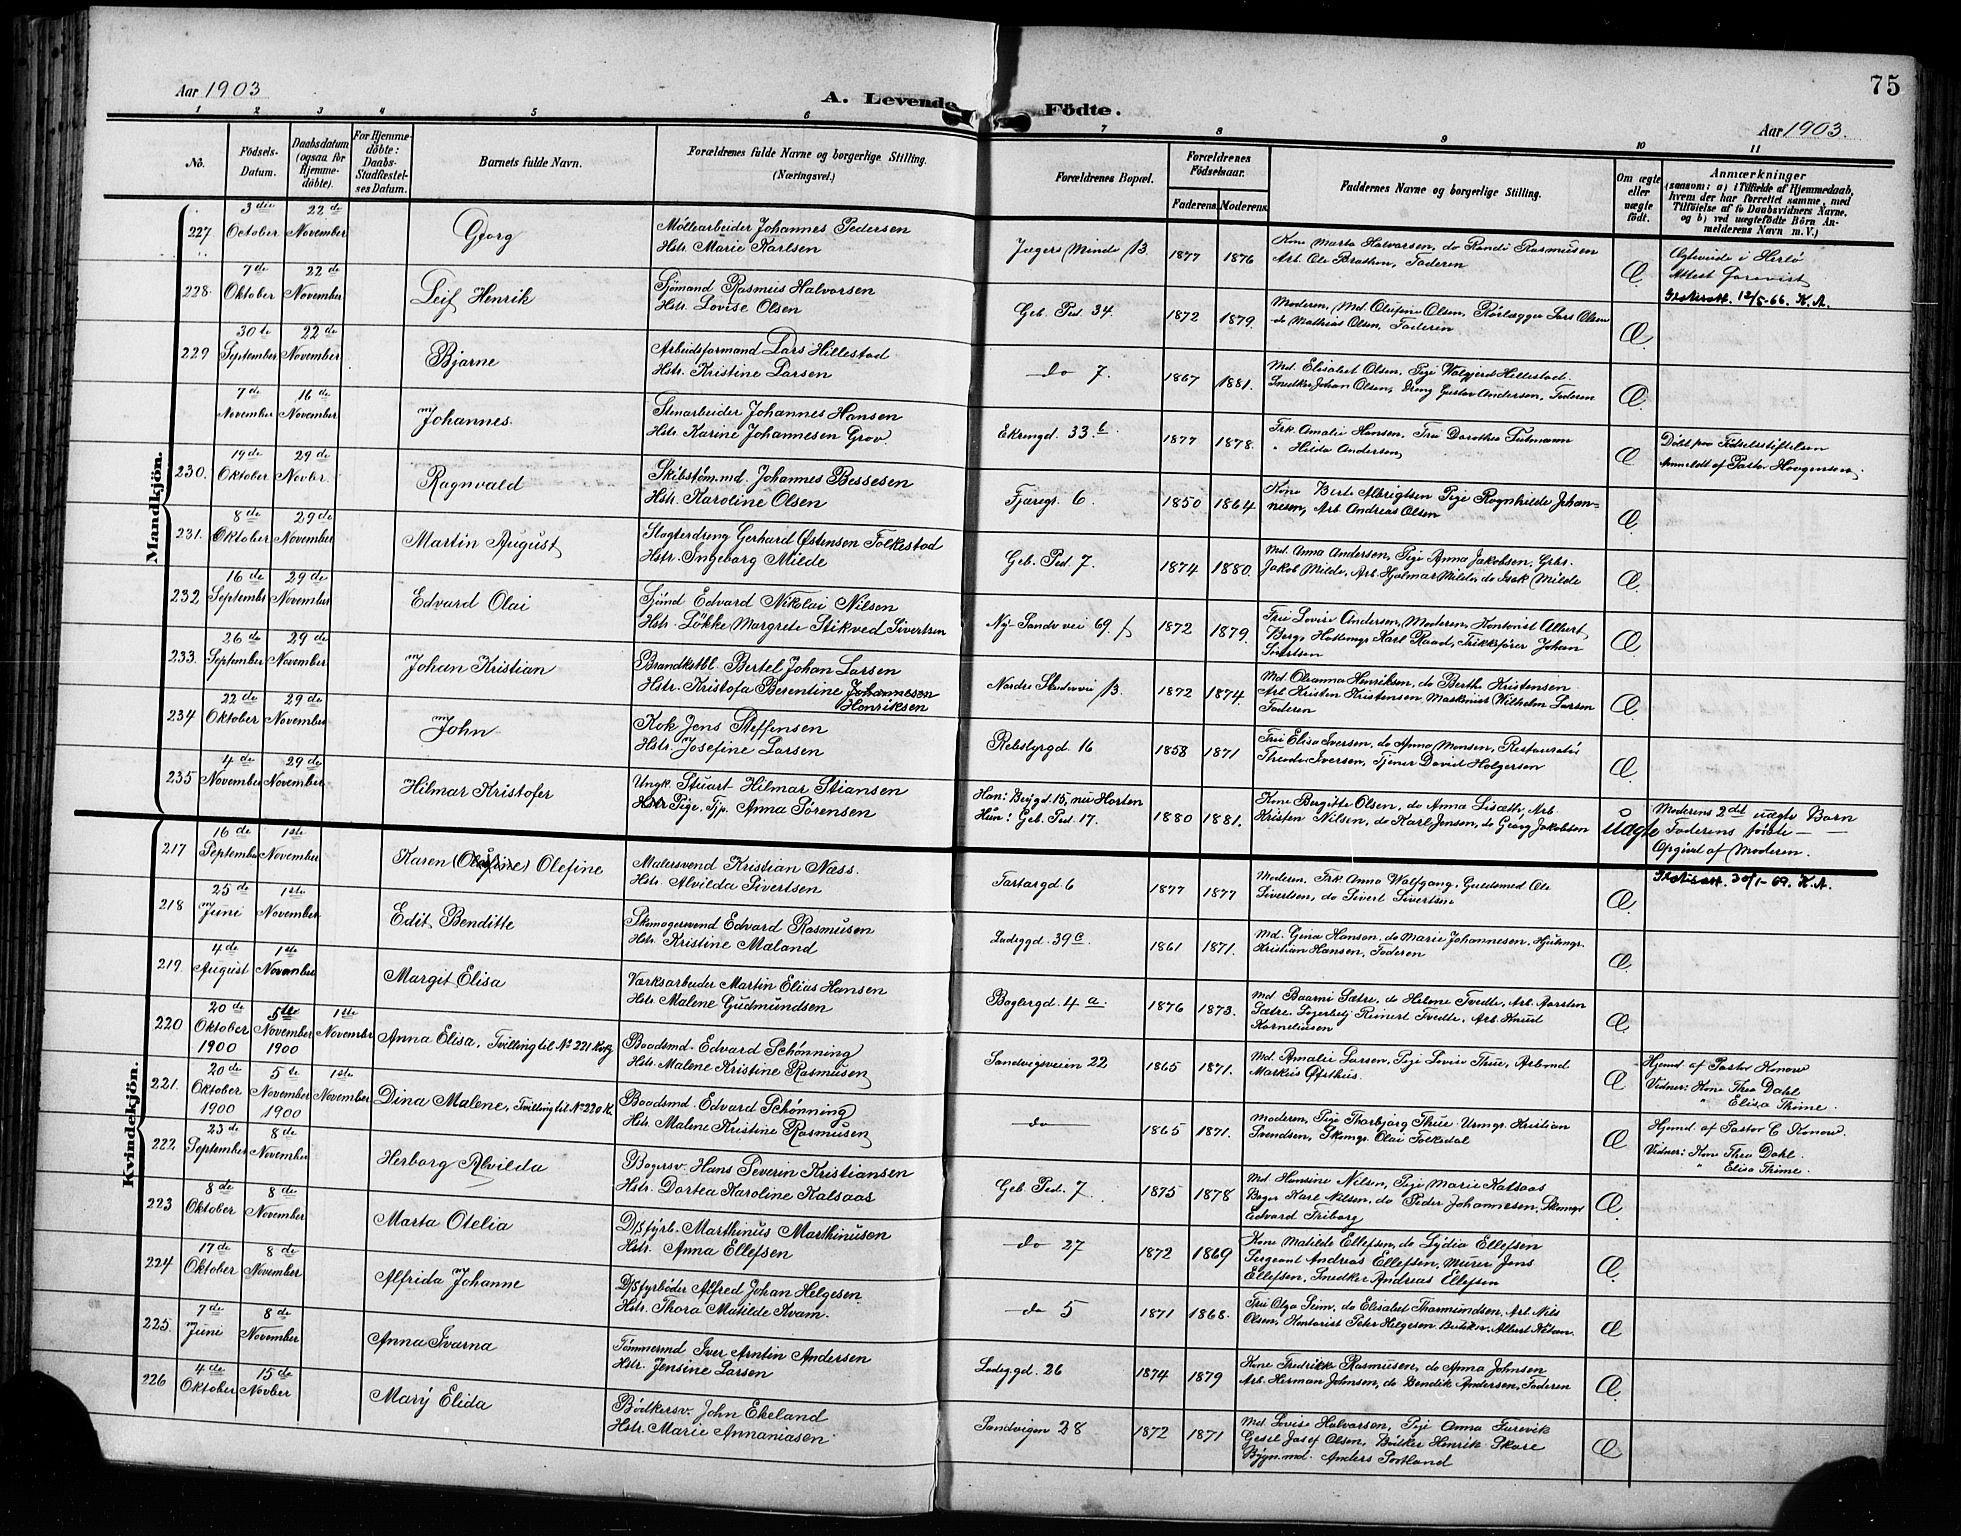 Aar 1903
A. Levende Födte.
75
Aar 1903.
1 2 3 4 5 6 7 8 9 10 11
No.
Födsels-
Datum.
Daabsdatum
(ogsaa for
Hjemme-
döbte).
For Hjemme-
döbte:
Daabs-
Stadfæstel-
ses Datum.
Barnets fulde Navn.
Forældrenes fulde Navne og borgerlige Stilling.
(Næringsvei.)
Forældrenes Bopæl.
Forældrenes
Födselsaar.
Faderens. Moderens.
Faddernes Navne og borgerlige Stilling.
Om ægte
eller
uægte
födt.
Anmærkninger
(saasom: a) i Tilfælde af Hjemmedaab,
hvem der har forrettet samme, med
Tilföielse af to Daabsvidners Navne,
og b) ved uægtefödte Börn An-
melderens Navn m. V.)
Mandkjön.
227. 3die October 22de November
Georg
Möllearbeider Johannes Pedersen
Hstr. Marie Karlsen
Jægers Minde 13. 1877 1876
Kone Marta Halvorsen, do Randi Rasmussen
Arb. Ole Brathen, Faderen
Æ.
Attest
228. 7de Oktober 22de November
Leif Henrik
Sjömand Rasmus Halvorsen
Hstr. Lovise Olsen
Geb. Ped. 34. 1872 1879.
Moderen, Md. Olufine Olsen, Rörlægger Lars Olsen
do Mathias Olsen, Faderen
Æ.
12/5-66. K.A.
229 30te September 22de November
Bjarne
Arbeidsformand Lars Hillestad
Hstr. Kristine Larsen
do 7. 1867 1881.
Md. Elisabet Olsen, Pige Hillestad
Snedker Johan Olsen, Dreng Gustav Andersen, Faderen
Æ.
7de November 16de November
Johannes.
Stenarbeider Johannes Hansen
Hstr. Karine Johannesen Grov.
Ekrengd. 33 b. 1877 1878.
Frk. Amalie Hansen, Fru Dorothea
" Hilda Andersen,
Æ
Döbt paa Fødselsstiftelsen
Anmeldt af Pastor
230. 19de Oktober 29de Novbr.
Ragnvald
Skibstöm.md. Johannes Bessesen
Hstr. Karoline Olsen
Fjæregs. 6. 1850 1864
Kone Berte Albrigtsen Pige Rognhilde Johan-
nesen, Arb. Andreas Olsen
Æ.
231. 8de Oktober 29de November
Martin August
Slagterdreng Gerhard Østensen Folkestad
Hstr. Ingeborg Milde
Geb. Ped. 7. 1874 1880.
Md. Anna Andersen, Pige Anna Jakobsen, Grbs.
Jakob Milde, Arb. Hjalmar Milde, do Isak Milde
Æ.
232 16de September 29de November
Edvard Olai
Sjömd Edvard Nikolai Nilsen
Hstr. Løkke Margrete Stikved Sivertsen
Ny-Sandv.vei 69. f 1872 1879.
Fru Lovise Andersen, Moderen, Kontorist Albert
Berge Karl Raad, Trikkfører Johan
Sivertsen
Æ.
233. 26de September 29de November
Johan Kristian
Brandkstbl. Bertel Johan Larsen
Hstr. Kristofa Berentine Johannesen
Henriksen
Nordre Skudevei 13. 1872 1874.
Md. Oleanna Henriksen, do Berthe Kristensen
Arb Kristen Kristensen Maskinist Wilhelm Larsen
Faderen
Æ.
234 22de Oktober 29de November
John
Kok Jens Steffensen
Hstr. Josefine Larsen
Rebslyrgd. 16 1858 1871
Fru Elisa Iversen, do Anna Monsen, Restauratör
Theodor Iversen, Tjener David Holgersen
Æ.
235 4de November 29de November.
Hilmar Kristofer
Ungk. Stuart Hilmar Stiansen
Hstr Pige, Tjp. Anna Sörensen
Han: Beÿgd. 15, nu Horten
Hun: Geb. Ped. 17. 1880 1881.
Kone Bergitte Olsen, do Anna Lisæth, Arb.
Kristen Nilsen, do Karl Jensen, do Georg Jakobsen
uægte
Moderens 2det uægte Barn
Faderens förste —
Opgivet af Moderen.
Kvindekjön.
217 16de September 1ste November
Karen (Olufine) Olefine
Malersvend Kristian Næss.
Hstr. Alvilda Sivertsen
Tartargd. 6 1877 1877
Moderen, Frk. Anna Wolfgang, Guldsmed Ole
Sivertsen, do Sivert Sivertsen
Æ.
30/1-69. K.A.
218 25de Juni 1ste November
Edit Benditte
Skomagersvend Edvard Rasmusen
Hstr. Kristine Maland
Ladeggd. 39 c. 1861 1871.
Md. Gina Hansen, do Marie Johannesen, Hjulmgr.
Kristian Hansen, Faderen
Æ.
219. 4de August 1ste November
Margit Elisa
Værksarbeider Martin Elias Hansen
Hstr. Malene Gudmundsen
Boglergd. 4 a. 1876 1873.
Md. Baarni Sætre, do Helene Tvedte, Arb. Aarsten
Sætre, Reinert Tvedte, Arb. Knud
Korneliusen
Æ
220 20de Oktober 1900 5te November 1900 1ste November
Anna Elisa, Tvilling til No 221 Kvkj.
Baadsmd. Edvard Schønning
Hstr. Malene Kristine Rasmusen
Sandvigsveien 22 1865 1871.
Md. Amalie Larsen, Pige Lovise Thue,
Markus Østhus.
Æ
Hjemd. af Pastor Konow
Vidner: Kone Thea Dahl
" Elisa Thime.
221. 20de Oktober 1900 5te November 1900 1ste November
Dina Malene, Tvilling til No 220 K.
Baadsmd. Edvard Schønning
Hstr. Malene Kristine Rasmusen
do 1865 1871.
Moderen, Pige Thorbjørg Thue Urmgr. Kristian
Svendsen, Skomgr. Olai Folkedal
Æ
Hjemd. af Pastor C. Konow.
Vidner: Kone Thea Dahl.
" Elisa Thime.
222. 23de September 8de November
Herborg Alvilda
Bagersv. Hans Severin Kristiansen
Hstr. Dortea Karoline Kalsaas
Geb. Ped. 7. 1875 1878
Md Hansine Nilsen, Pige Marie Kalsaas
Bager Karl Nilsen, do Peder Johannesen, Skomgr
Edvard Friborg
Æ.
223 8de Oktober 8de November
Marta Otelia
D/S fyrb. Marthinus Marthinusen
Hstr. Anna Ellefsen
do 27 1872 1869
Kone Matilde Ellefsen, do Lydia Ellefsen
Sergeant Andreas Ellefsen, Murer Jens
Ellefsen, Snedker Andreas Ellefsen
Æ.
224 17de Oktober 8de November
Alfrida Johanne
D/S fyrböder Alfred Johan Helgesen
Hstr. Thora Matilde Kvam.
do 5 1871 1868.
Fru Olga Seim, do Elisabet Thormundsen, Arb. Nils
Olsen, Kontorist Peter Helgesen, Albert
Æ
225. 7de Juni 8de November
Anna Ivarna
Tömmermd Iver Arntin Andersen
Hstr. Jensine Larsen
Ladeg.gd. 26 1874 1879
Kone Fredrikke Rasmusen, do Anna Johnsen
Arb. Herman Johnsen, do Bendik Andersen, Faderen
Æ.
226 4de Oktober 15de Novber
Marÿ Elida
Bödkersv. John Ekeland
Hstr. Marie Annaniasen
Sandvigen 28 1872 1871
Md Lovise Halvorsen, Pige Anna Furevik
Gesel Josef Olsen, Bödker Henrik Skare
Bygn.md. Anders Sortland
Æ.